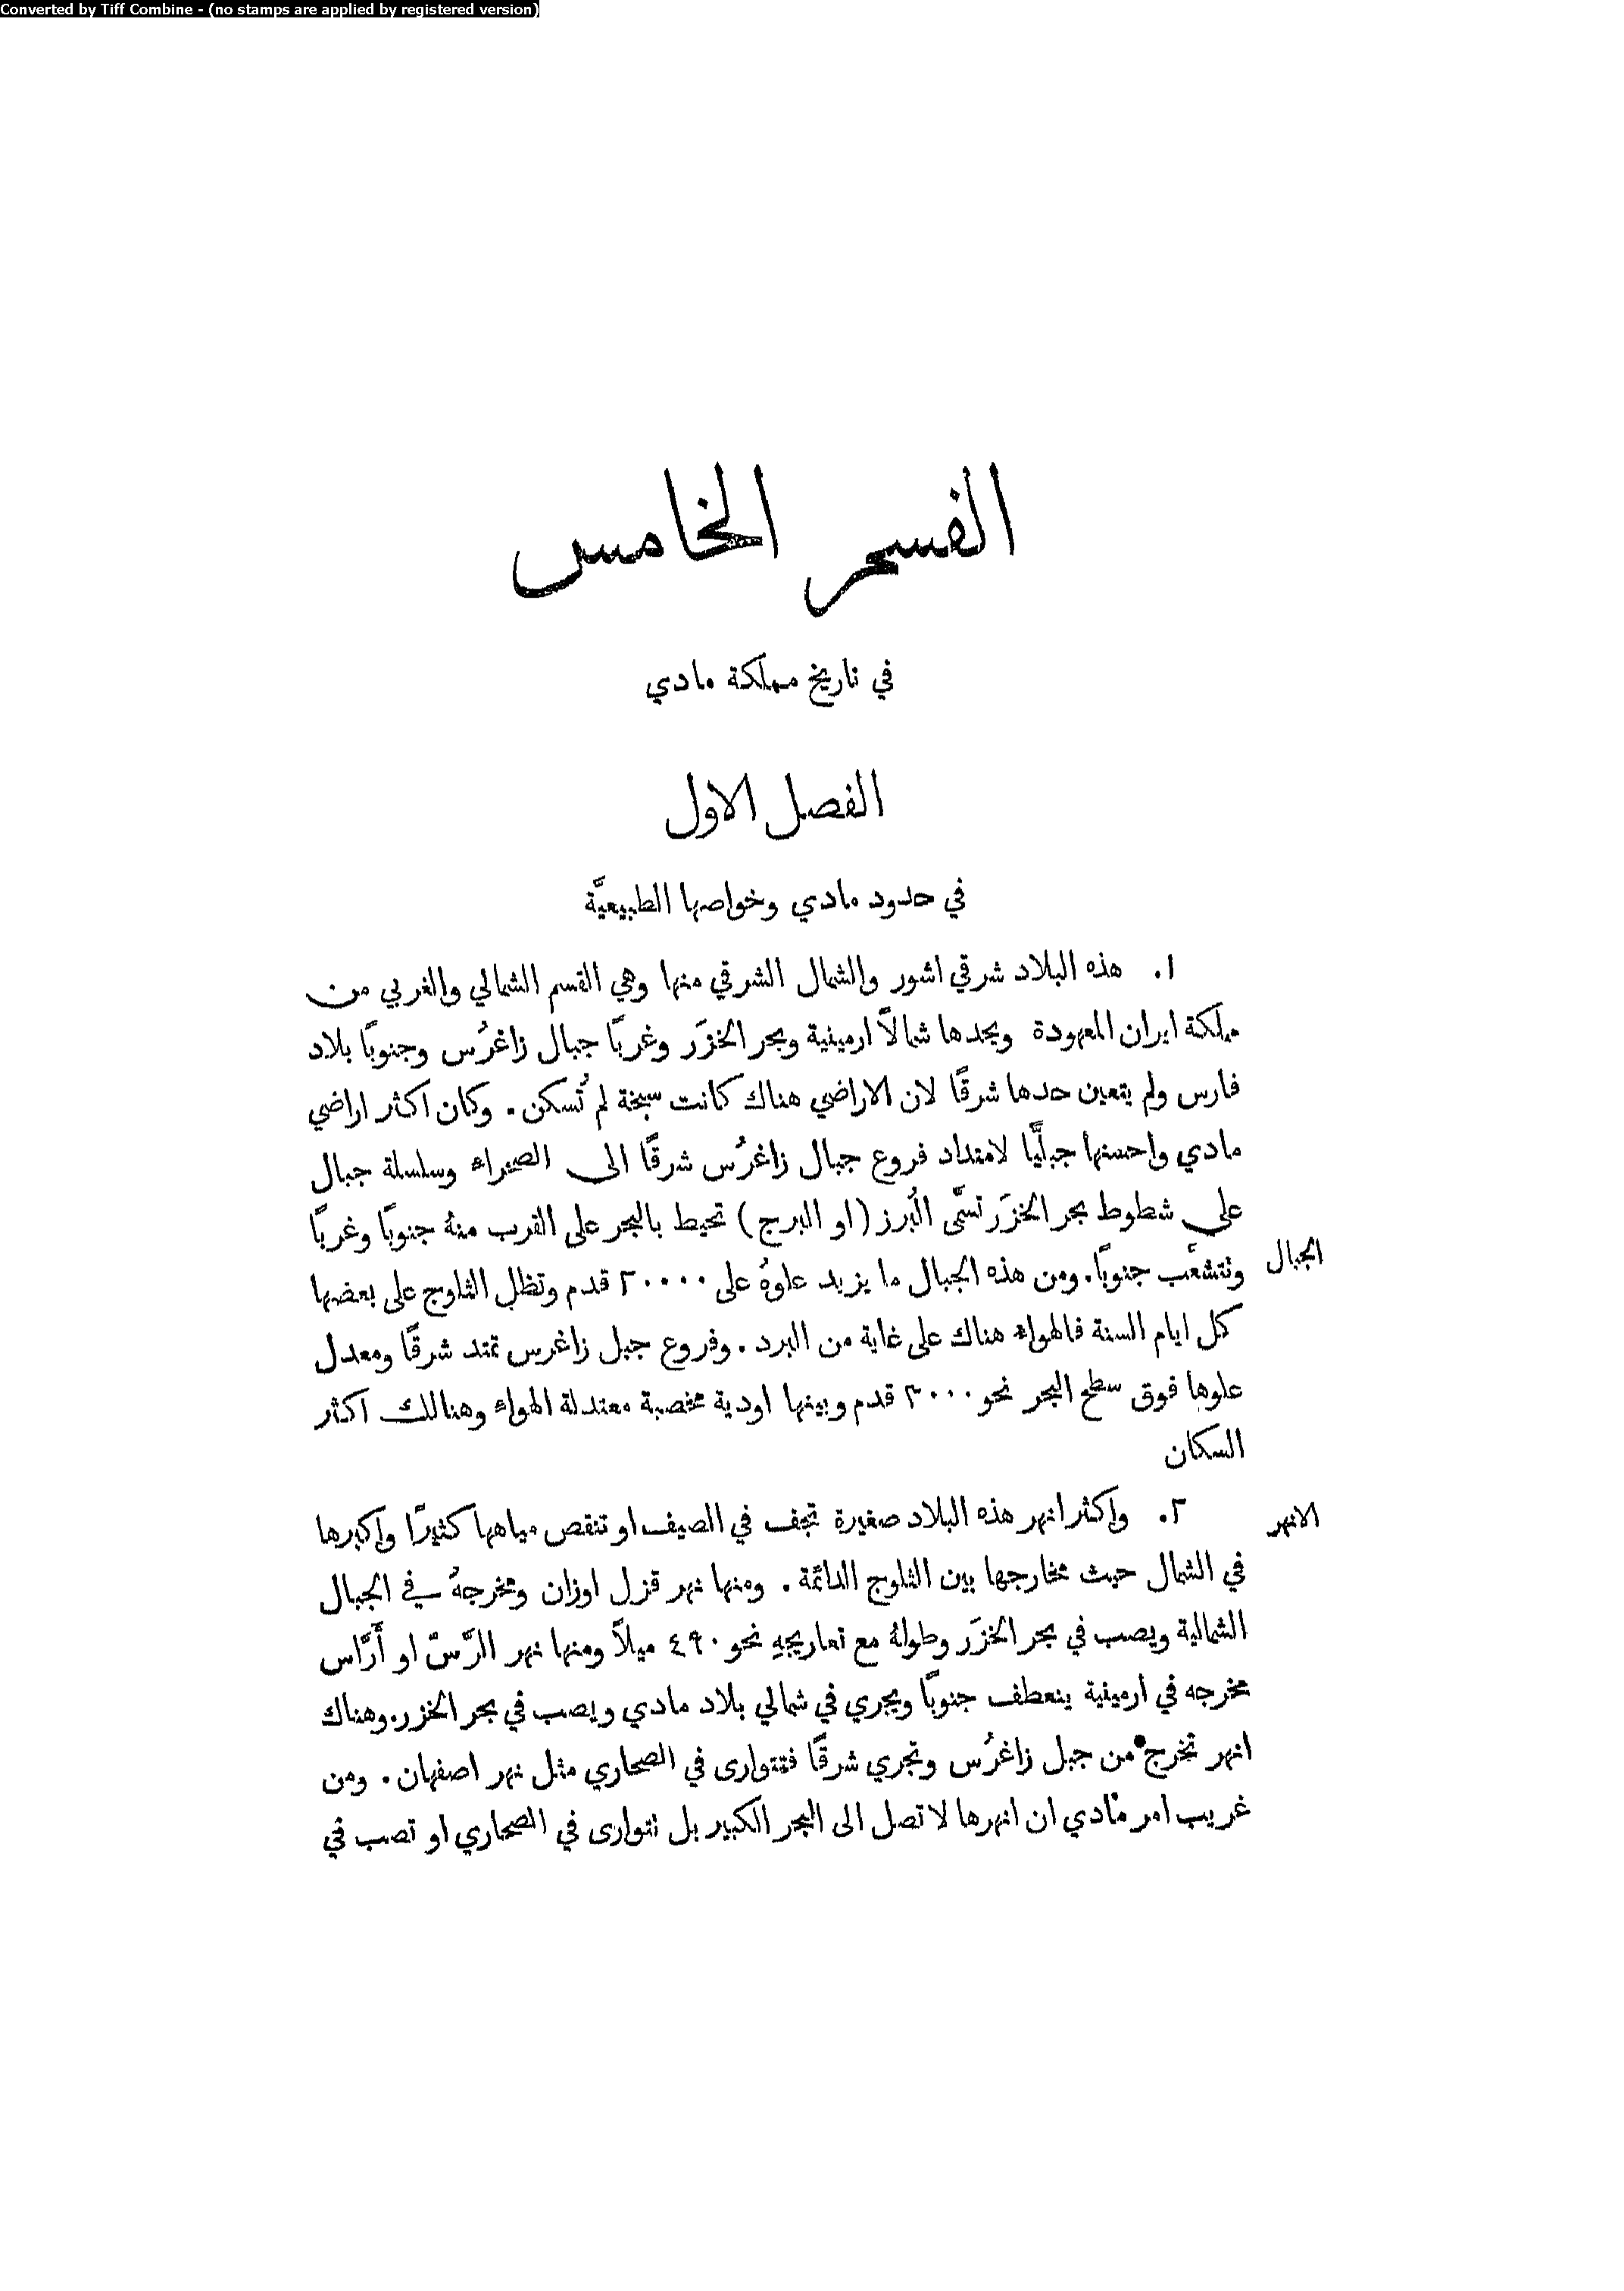 Converted by Tiff Combine - (no stamps are applied by registered version)
القسم الخامس
في تاريخ مملكة مادي
الفصل الاول
في حدود مادي وخواصها الطبيعيَّة
١. هذه البلاد شرقي اشور والشمال الشرقي منها وهي القسم الشمالي والغربي من
مملكة ايران المعهودة ويحدها شمالاً ارمينية وبحر الخزَر وغربًا جبال زاغرُس وجنوبًا بلاد
فارس ولم يتعين حدها شرقًا لان الاراضي هناك كانت سبخة لم تُسكن. وكان اكثر اراضي
مادي واحسنها جبليًّا لامتداد فروع جبال زاغرُس شرقًا الى الصحراء وسلسلة جبال
على شطوط بحر الخزَر تسمَّى البُرز (او البرج) تحيط بالبحر على القرب منهُ جنوبًا وغربًا
الجبال
وتتشعَّب جنوبًا. ومن هذه الجبال ما يزيد علوهُ على ٢٠٠٠٠ قدم وتظل الثلوج على بعضها
كل ايام السنة فالهواء هناك على غاية من البرد. وفروع جبل زاغرس تمتد شرقًا ومعدل
علوها فوق سطح البحر نحو ٣٠٠٠ قدم وبينها اودية مخصبة معتدلة الهواء وهنالك اكثر
السكان
الانهر
٢. واكثر انهر هذه البلاد صغيرة تجف في الصيف او تنقص مياهها كثيرًا واكبرها
في الشمال حيث مخارجها بين الثلوج الدائمة. ومنها نهر قزل اوزان ومخرجهُ في الجبال
الشمالية ويصب في بحر الخزَر وطولهُ مع تعاريجهِ نحو ٤٩٠ ميلاً ومنها نهر الرَّسّ او أَرَّاس
مخرجه في ارمينية ينعطف جنوبًا ويجري في شمالي بلاد مادي ويصب في بحر الخزر. وهناك
انهر تخرج من جبل زاغرُس وتجري شرقًا فتتوارى في الصحاري مثل نهر اصفهان. ومن
غريب امر مادي ان انهرها لا تصل الى البحر الكبير بل تتوارى في الصحاري او تصب في